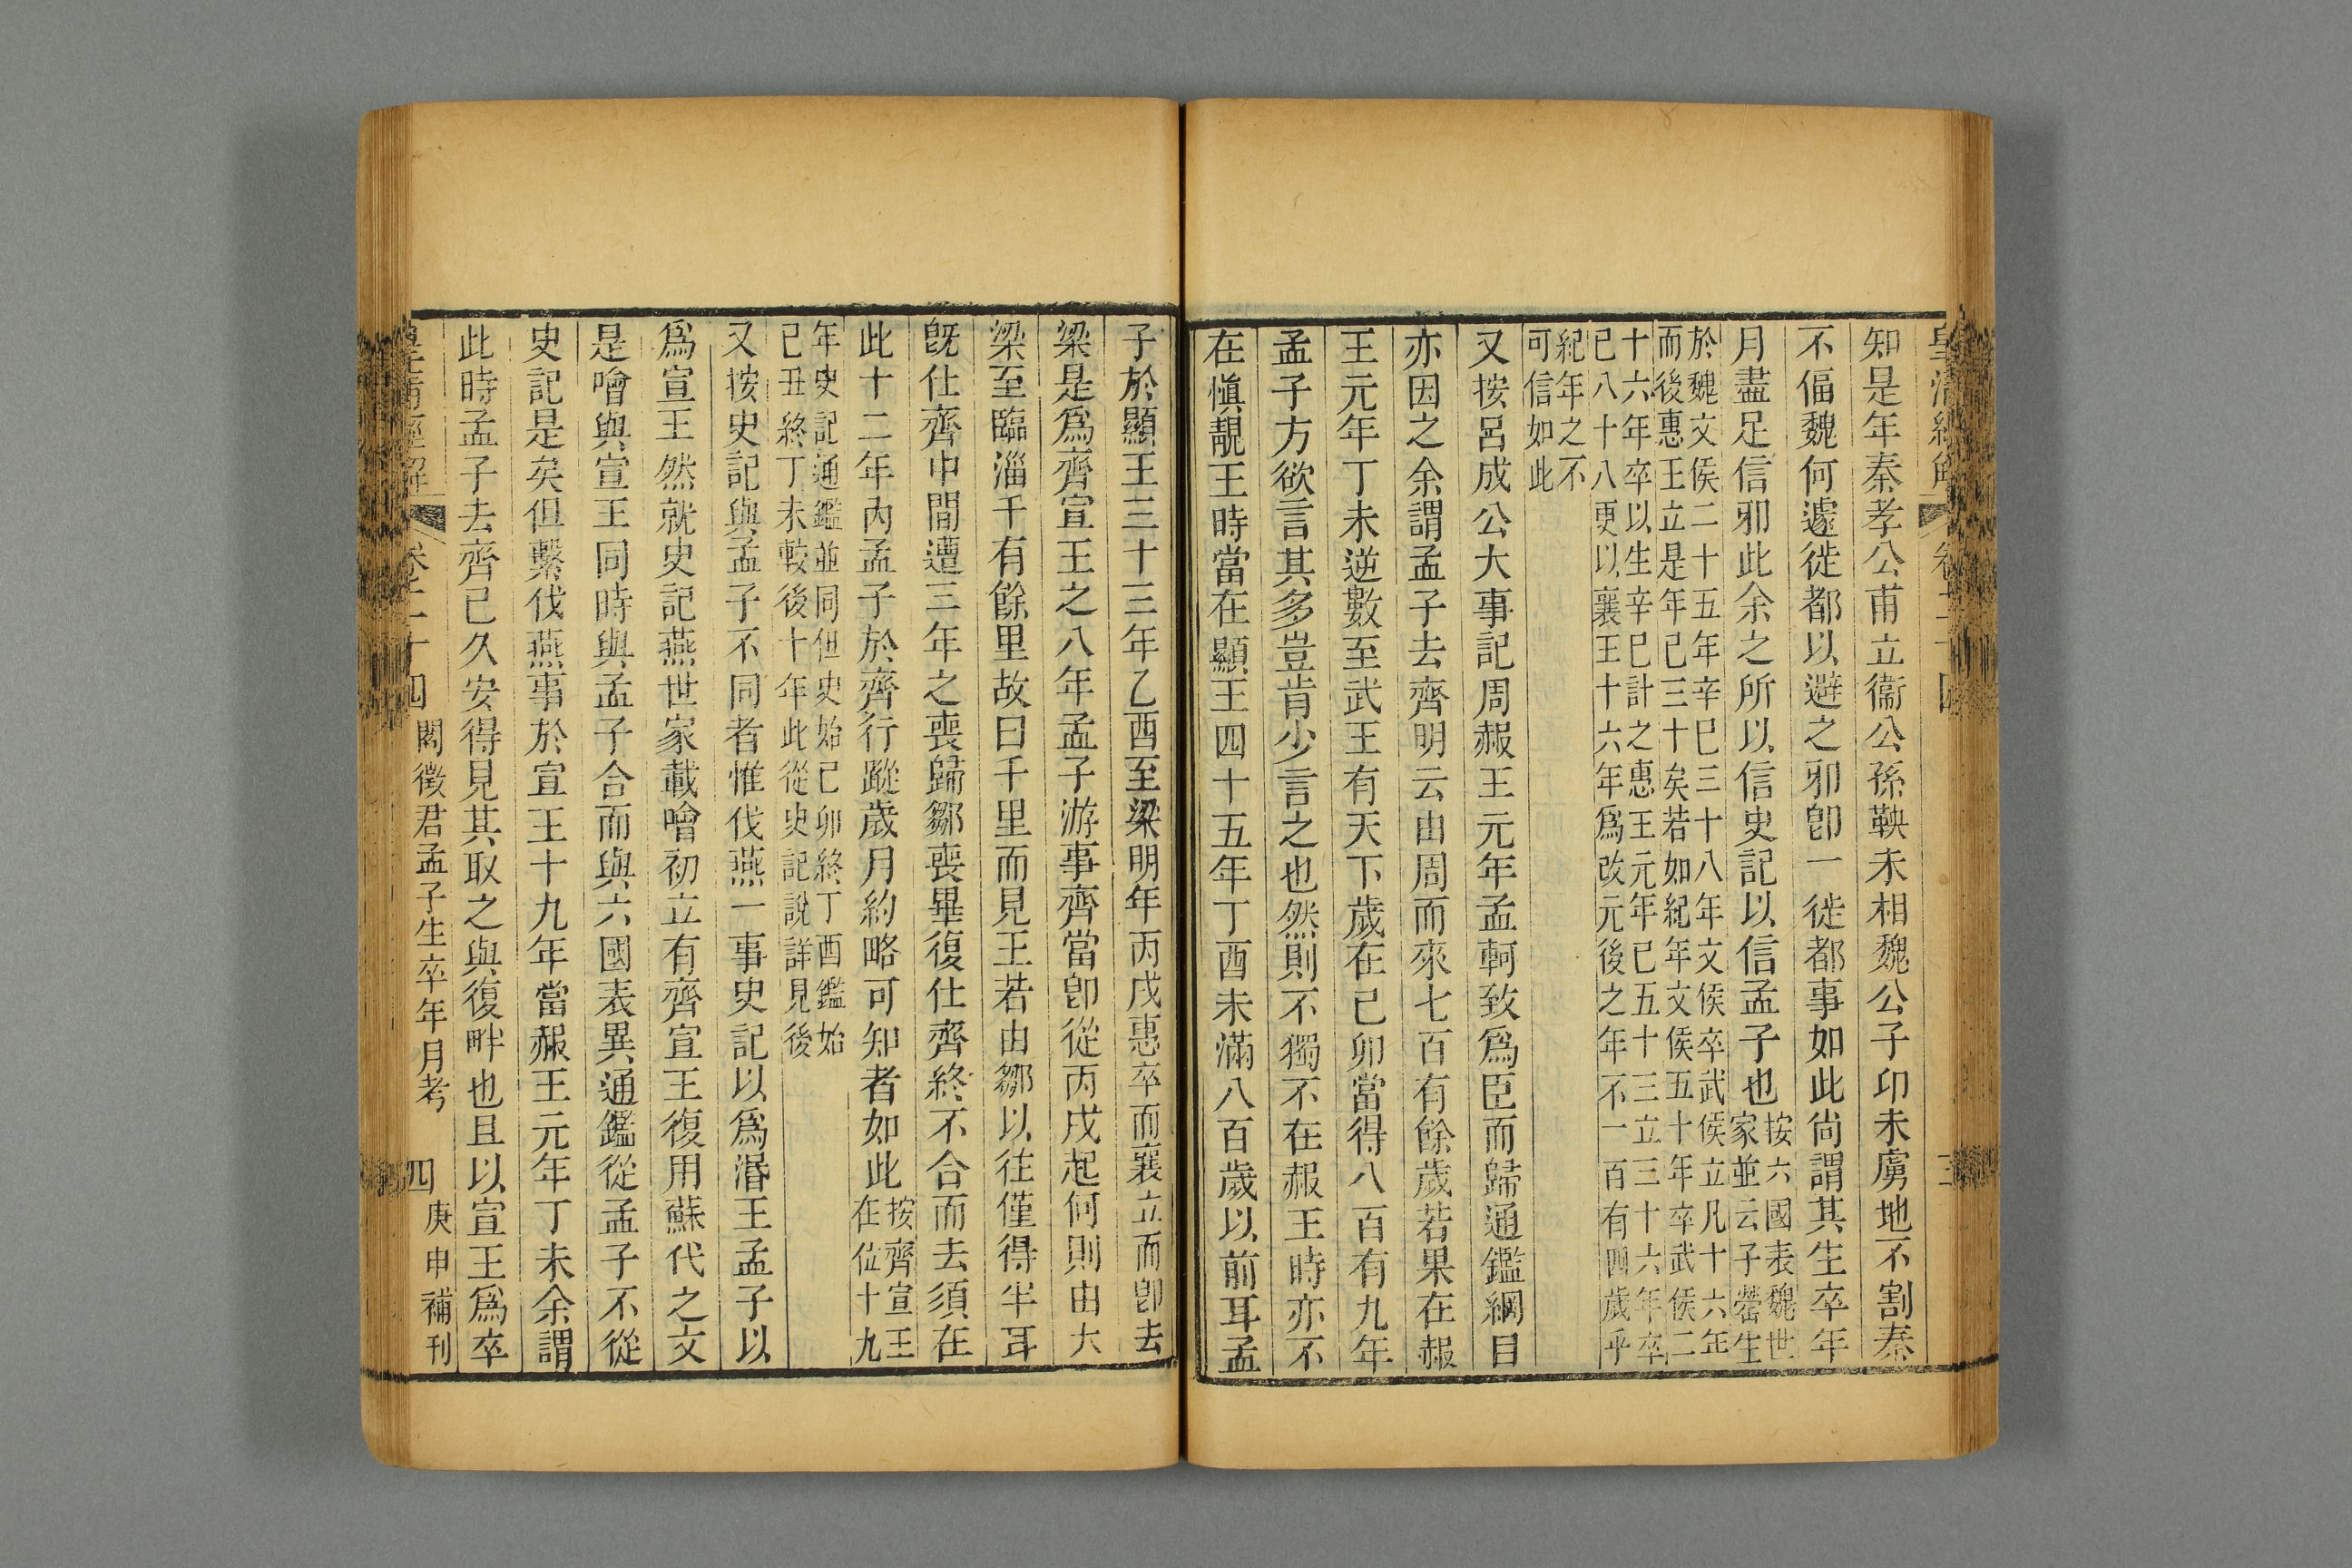 皇清經解 卷二十四 三
知是年秦孝公甫立衞公孫鞅未相魏公子卬未虜地不割秦
不偪魏何遽徙都以避之邪卽一徙都事如此尚謂其生卒年
月盡足信邪此余之所以信史記以信孟子也按六國表魏世
家並云子罃生
於魏文侯二十五年辛巳三十八年文侯卒武侯立凡十六年
而後惠王立是年已三十矣若如紀年文侯五十年卒武侯二
十六年卒以生辛巳計之惠王元年已五十三立三十六年卒
已八十八更以襄王十六年爲改元後之年不一百有四歲乎
紀年之不
可信如此
又按呂成公大事記周赧王元年孟軻致爲臣而歸通鑑綱目
亦因之余謂孟子去齊明云由周而來七百有餘歲若果在赧
王元年丁未逆數至武王有天下歲在己卯當得八百有九年
孟子方欲言其多豈肯少言之也然則不獨不在赧王時亦不
在慎靚王時當在顯王四十五年丁酉未滿八百歲以前耳孟
子於顯王三十三年乙酉至梁明年丙戌惠卒而襄立而卽去
梁是爲齊宣王之八年孟子游事齊當卽從丙戌起何則由大
梁至臨淄千有餘里故曰千里而見王若由鄒以往僅得半耳
旣仕齊中間遭三年之喪歸鄒喪畢復仕齊終不合而去須在
此十二年內孟子於齊行蹤歲月約略可知者如此按齊宣王
在位十九
年史記通鑑並同但史始己卯終丁酉鑑始
己丑終丁未較後十年此從史記說詳見後
又按史記與孟子不同者惟伐燕一事史記以爲湣王孟子以
爲宣王然就史記燕世家載噲初立有齊宣王復用蘇代之文
是噲與宣王同時與孟子合而與六國表異通鑑從孟子不從
史記是矣但繫伐燕事於宣王十九年當赧王元年丁未余謂
此時孟子去齊已久安得見其取之與復畔也且以宣王爲卒
皇清經解 卷二十四 閻徵君孟子生卒年月考 四 庚申補刊